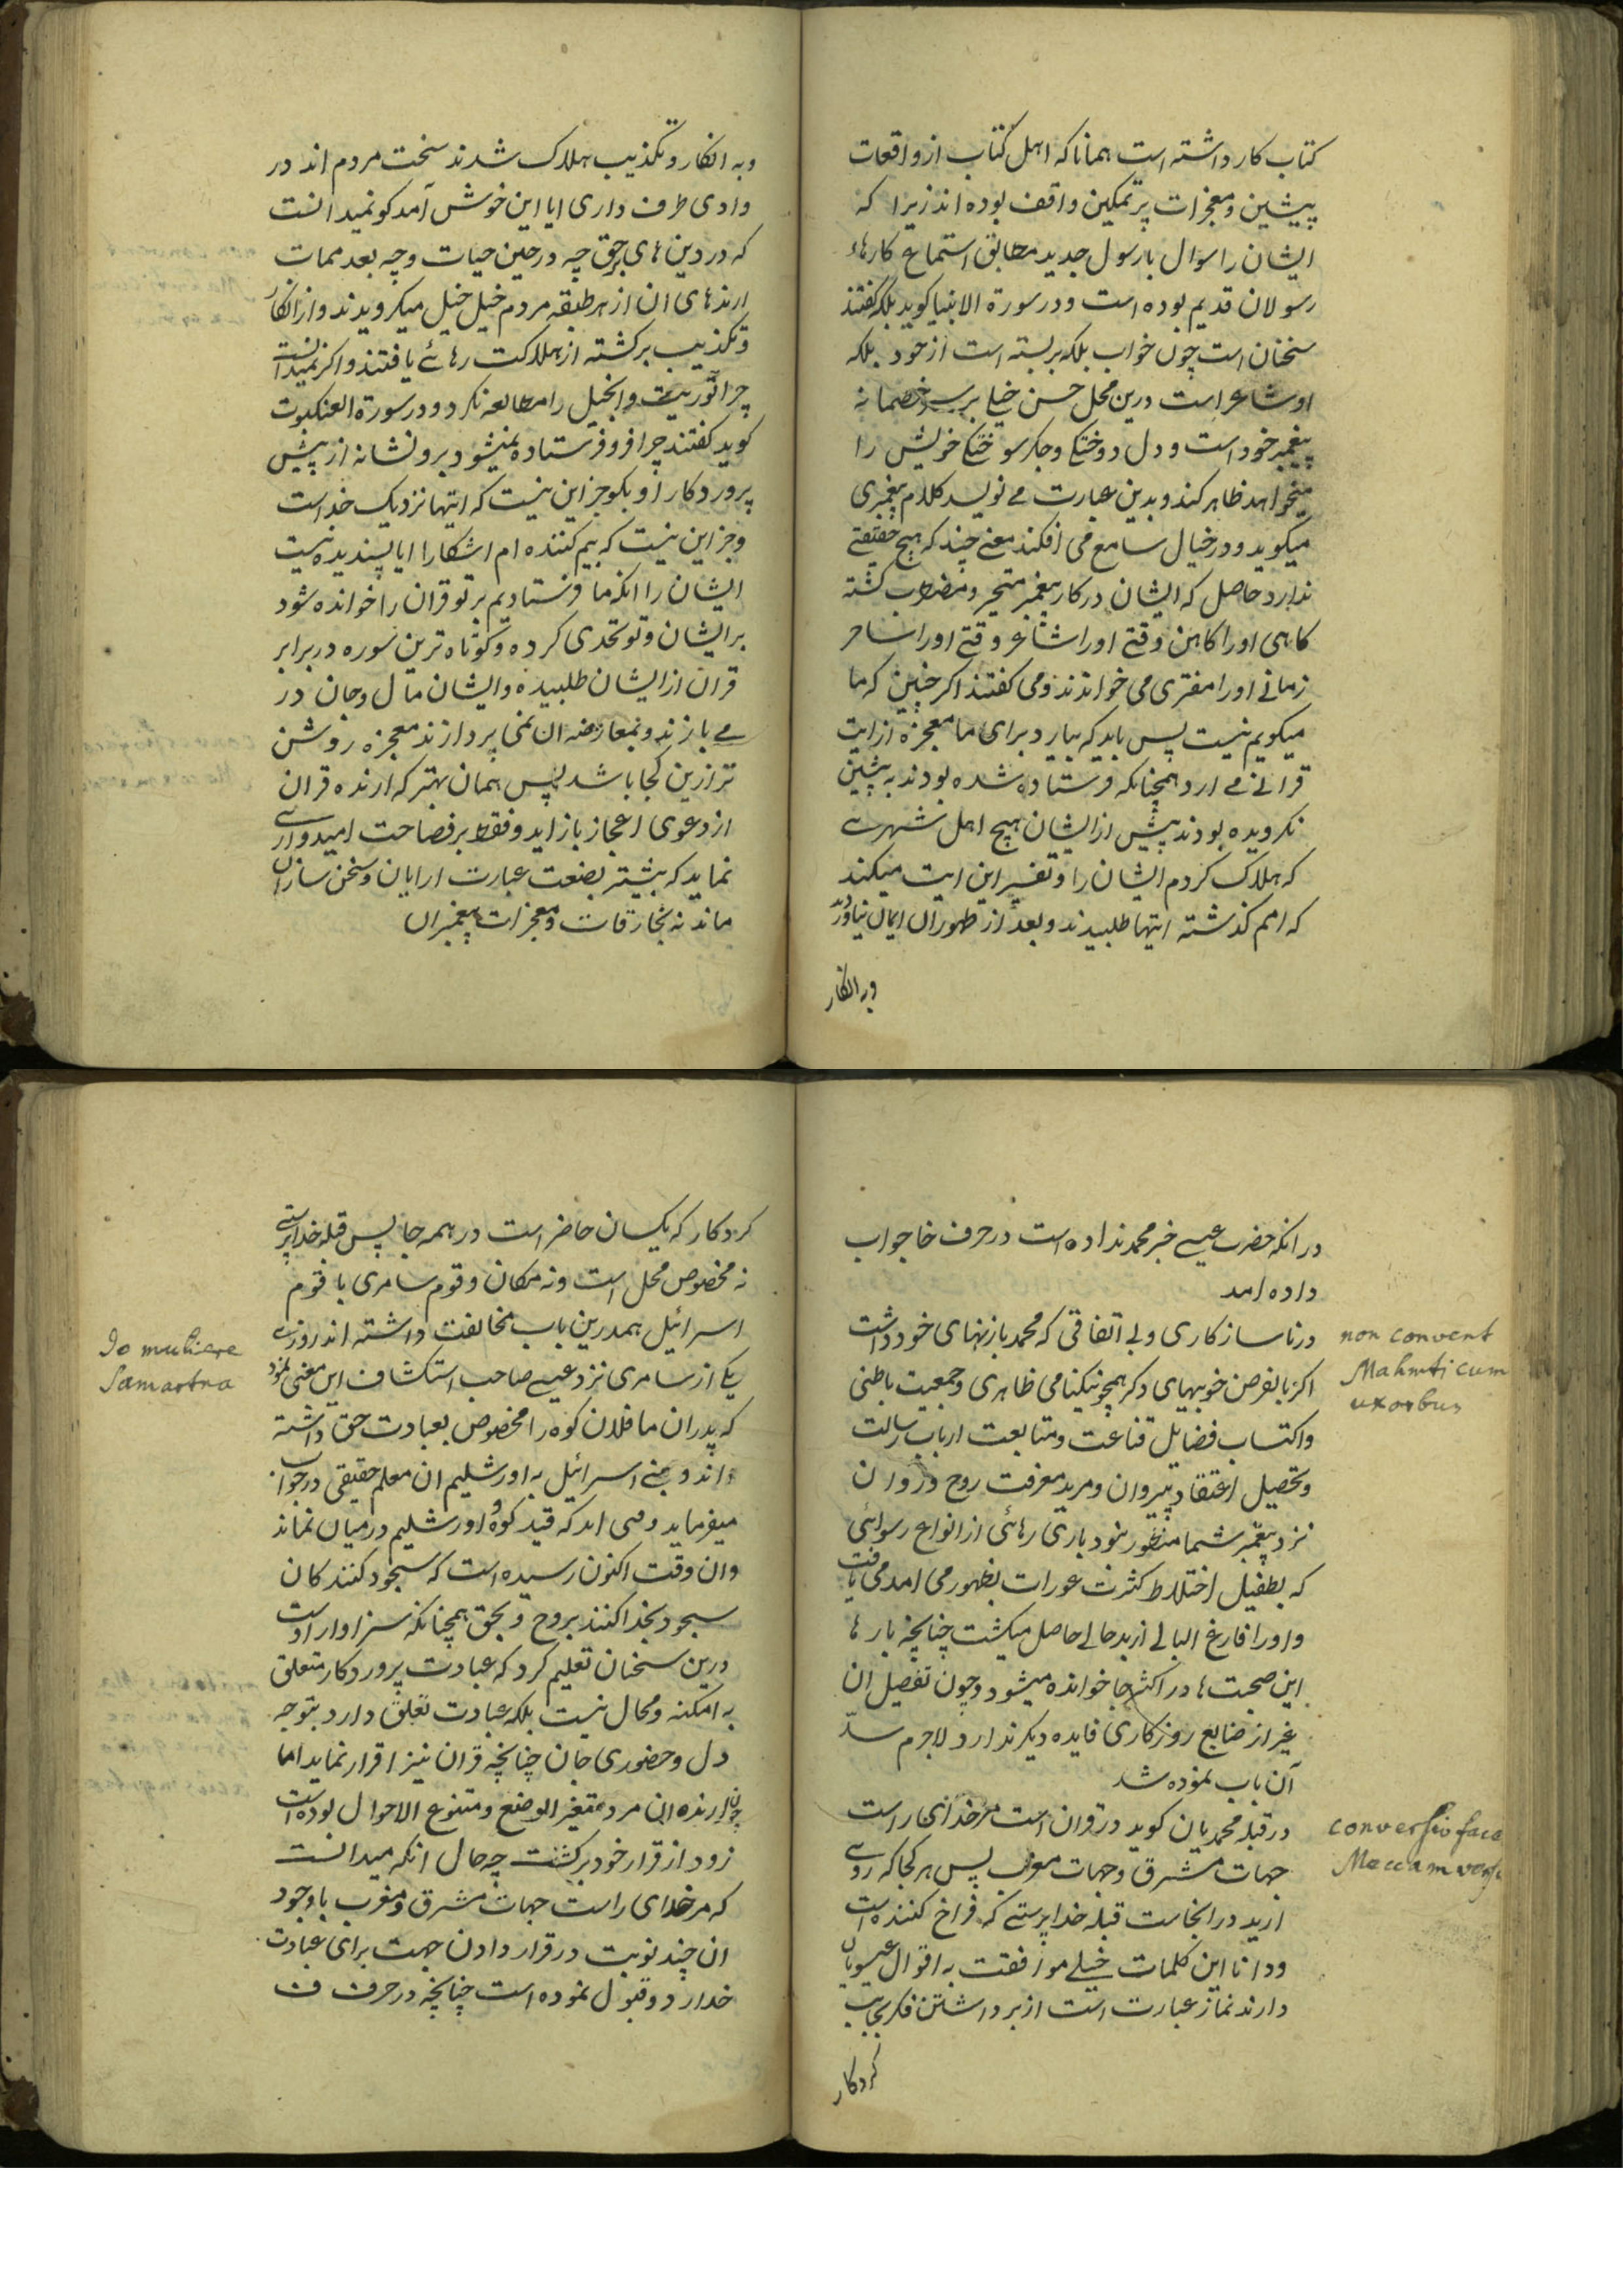 کتاب کار داشته است همانا که اهل کتاب از واقعات
پیشین و معجزات پرتمکین واقف بوده اند زیرا که
ایشان را سوال با رسول جدید مطابق استماع کارهاء
رسولان قدیم بوده است و در سورة الانبیا کوید بلکه کفتند
سخنان است چون خواب بلکه بربسته است از خود بلکه
او شاعر است درین محل حسن خیلی برسر خصمانه
پیغمبر خود است و دل دوختکی و جکر سوختکی خویش را
میخواهد ظاهر کند و بدین عبارت می نویسد کلام پیغمبری
میکوید و در خیال سامع می افکند معنی چند که هیچ حقیقتی
ندارد حاصل که ایشان در کار پیغمبر متحیر و مضطرب کشته
کاهی اورا کاهن وقتی اورا شاعر وقتی اورا ساحر
زمانی اورا مفتری می خواندند و می کفتند اکر چنین که ما
میکویم نیست پس باید که بیارد برای ما معجزه از ایت
قرانی می ارد همچنانکه فرستاده شده بودند به پیشین
نکرویده بودند پیش از ایشان هیچ اهل شهرے
که هلاک کردم ایشان را و تفسیر این ایت میکند
که امم کذشته ایتها طلبیدند و بعد از ظهور ان ایمان نیاوردند
وبه انکار
وبه انکار و تکذیب هلاک شدند سخت مردم اند در
وادی طرف داری ایا این خوش آمد کو نمیدانست
که در دین های برحق چه در حین حیات و چه بعد ممات
ارندهای ان از هر طبقه مردم خیل خیل میکرویدند و از انکار
و تکذیب برکشته از هلاکت رهائے یافتند و اکر نمیدانست
چرا توریت و انجیل را مطالعه نکرد و در سورة العنکبوت
کوید کفتند چرا فرو فرستاده نمیشود برو نشانه از پیش
پروردکار او بکو جز این نیست که ایتها نزدیک خداست
و جز این نیست که بیم کننده ام اشکارا ایا پسندیده نیست
ایشان را انکه ما فرستادیم بر تو قران را خوانده شود
بر ایشان و تو تحدی کرده و کوتاه ترین سوره در برابر
قران از ایشان طلبیده و ایشان مال و جان در
مے بازند و بمعارضه ان نمی پردازند معجزه روشن
تر ازین کجا باشد پس همان بهتر که ارنده قران
از دعوی اعجاز باز اید و فقط بر فصاحت امیدوارے
نماید که بیشتر بصنعت عبارت ارایان و سخن سازان
ماند نه بخارقات و معجزات پیغمبران
در انکه حضرت عیسی خبر محمد نداده است در حرف خا جواب
داده امد
در ناسازکاری و بی اتفاقی که محمد با زنهای خود داشت
اکر بالفرض خوبیهای دکر همچو نیکنامی ظاهری و جمعیت باطنی
و اکتساب فضایل قناعت و متابعت ارباب رسالت
و تحصیل اعتقاد پیروان و مرید معرفت روح و روان
نزد پیغمبر شما منظور نبود باری رهائی از انواع رسوائی
که بطفیل اختلاط کثرت عورات بظهور می امد می یافت
و اورا فارغ البالی از بدحالی حاصل میکشت چنانچه بارها
این صحبت ها در اکثر جا خوانده میشود و چون تفصیل ان
غیر از ضایع روزکاری فایده دیکر ندارد لاجرم سدّ
آن باب نموده شد
در قبله محمدیان کوید در قران است مر خدای راست
جهات مشرق و جهات مغرب پس هر کجا که روی
ارید در انجاست قبله خدا پرستی که فراخ کننده است
و دانا این کلمات خیلے موافقت به اقوال عیسویان
دارند نماز عبارت است از برداشتن فکر بجانب
کردکار
non convent
Mahmti cum
uxorbus
conversio facie
Meccam versus
کردکار که یکسان حاضر است در همه جا پس قبله خدا پرستی
نه مخصوص محل است و نه مکان و قوم سامری با قوم
اسرائیل همدرین باب مخالفت داشته اند روزی
یکی از سامری نزد عیسی صاحب استکشاف این معنی نمود
که پدران ما فلان کوه را مخصوص بعبادت حق داشته
اند و بنی اسرائیل به اورشلیم ان معلم حقیقی در جواب
میفرماید وقتی اید که قید کوه و اورشلیم در میان نماند
وان وقت اکنون رسیده است که سجود کنند کان
سجود بخدا کنند بروح و بحق همچنانکه سزاوار اوست
درین سخنان تعلیم کرد که عبادت پروردکار متعلق
به امکنه و محال نیست بلکه عبادت تعلق دارد بتوجه
دل و حضوری جان چنانچه قران نیز اقرار نماید اما
چون ارنده ان مرد متغیر الوضع و متنوع الاحوال بوده است
زود از قرار خود برکشت چه حال انکه میدانست
که مر خدای راست جهات مشرق و مغرب با وجود
ان چند نوبت در قرار دادن جهت برای عبادت
خدا رد و قبول نموده است چنانچه در حرف ف
Do muliere
Samartna